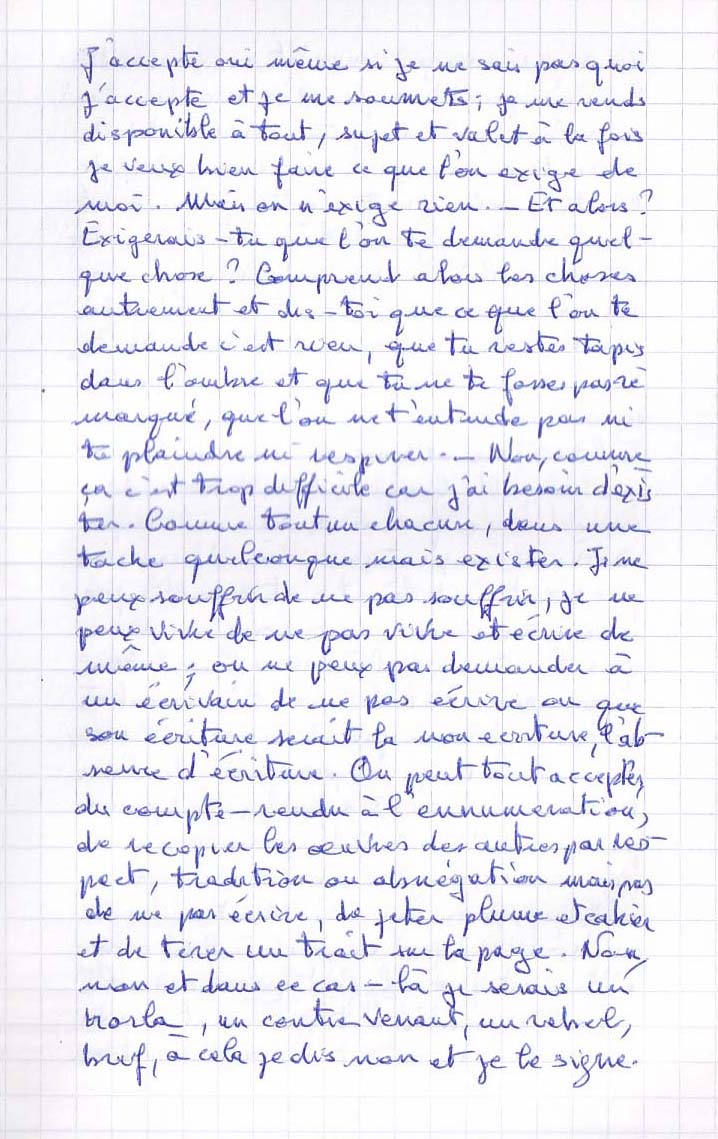 J'accepte oui même si je ne sais pas quoi
j'accepte et je me soumets ; je me rends
disponible à tout, sujet et valet à la fois
je veux bien faire ce que l'on exige de
moi. Mais on n'exige rien. — Et alors ?
Exigerais-tu que l'on te demande quel-
que chose ? Comprend alors les choses
autrement et dis-toi que ce que l'on te
demande c'est rien, que tu restes tapis
dans l'ombre et que tu ne te fasses pas re
marqué, que l'on ne t'entende pas ni
te plaindre ni respirer. — Non, comme
ça c'est trop difficile car j'ai besoin d'exis
ter. Comme tout un chacun, dans une
tache quelconque mais exister. Je ne
peux souffrir de ne pas souffrir, je ne
peux vivre de ne pas vivre et écrire de
même ; on ne peux pas demander à
un écrivain de ne pas écrire ou que
son écriture serait la non ecriture, l'ab-
sence d'écriture. On peut tout accepter,
du compte-rendu à l'ennumeration,
de recopier les œuvres des autres par res-
pect, tradition ou abnégation mais pas
de ne pas écrire, de jeter plume et cahier
et de tirer un trait sur la page. Non,
non et dans ce cas-là je serais un
horla, un contrevenant, un rebel,
bref, à cela je dis non et je le signe.